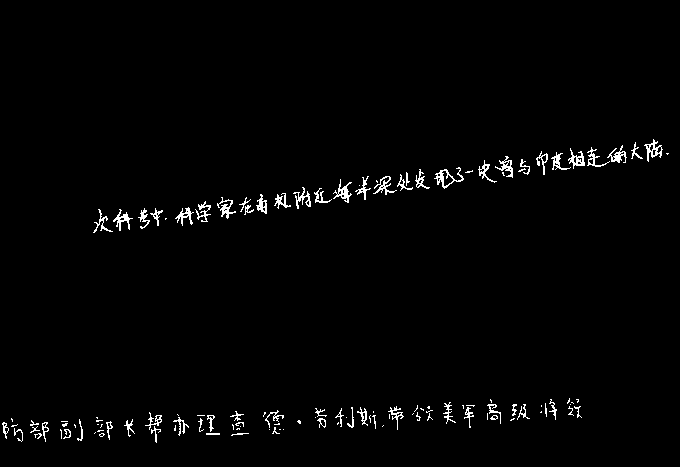 次科考中,科学家在南极附近海洋深处发现了一块曾与印度相连的大陆.
防部副部长帮办理查德·劳利斯,带领美军高级将领